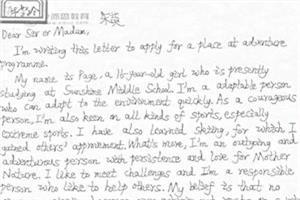 Dear Ser or Madam,
I'm writing this letter to apply for a place at adventure
programme.
My name is Page, a 16-year-old girl who is presently
studying at Sunshine Middle School. I'm a adaptable person
who can adapt to the environment quickly. As a courageous
person, I'm also keen on all kinds of sports, especially
extreme sports. I have also learned skiing, for which I
gained others' approvement. What's more, I'm an outgoing and
adventurous person with persistence and love for Mother
Nature. I like to meet challenges and I'm a responsible
person who like to help others. My belief is that no